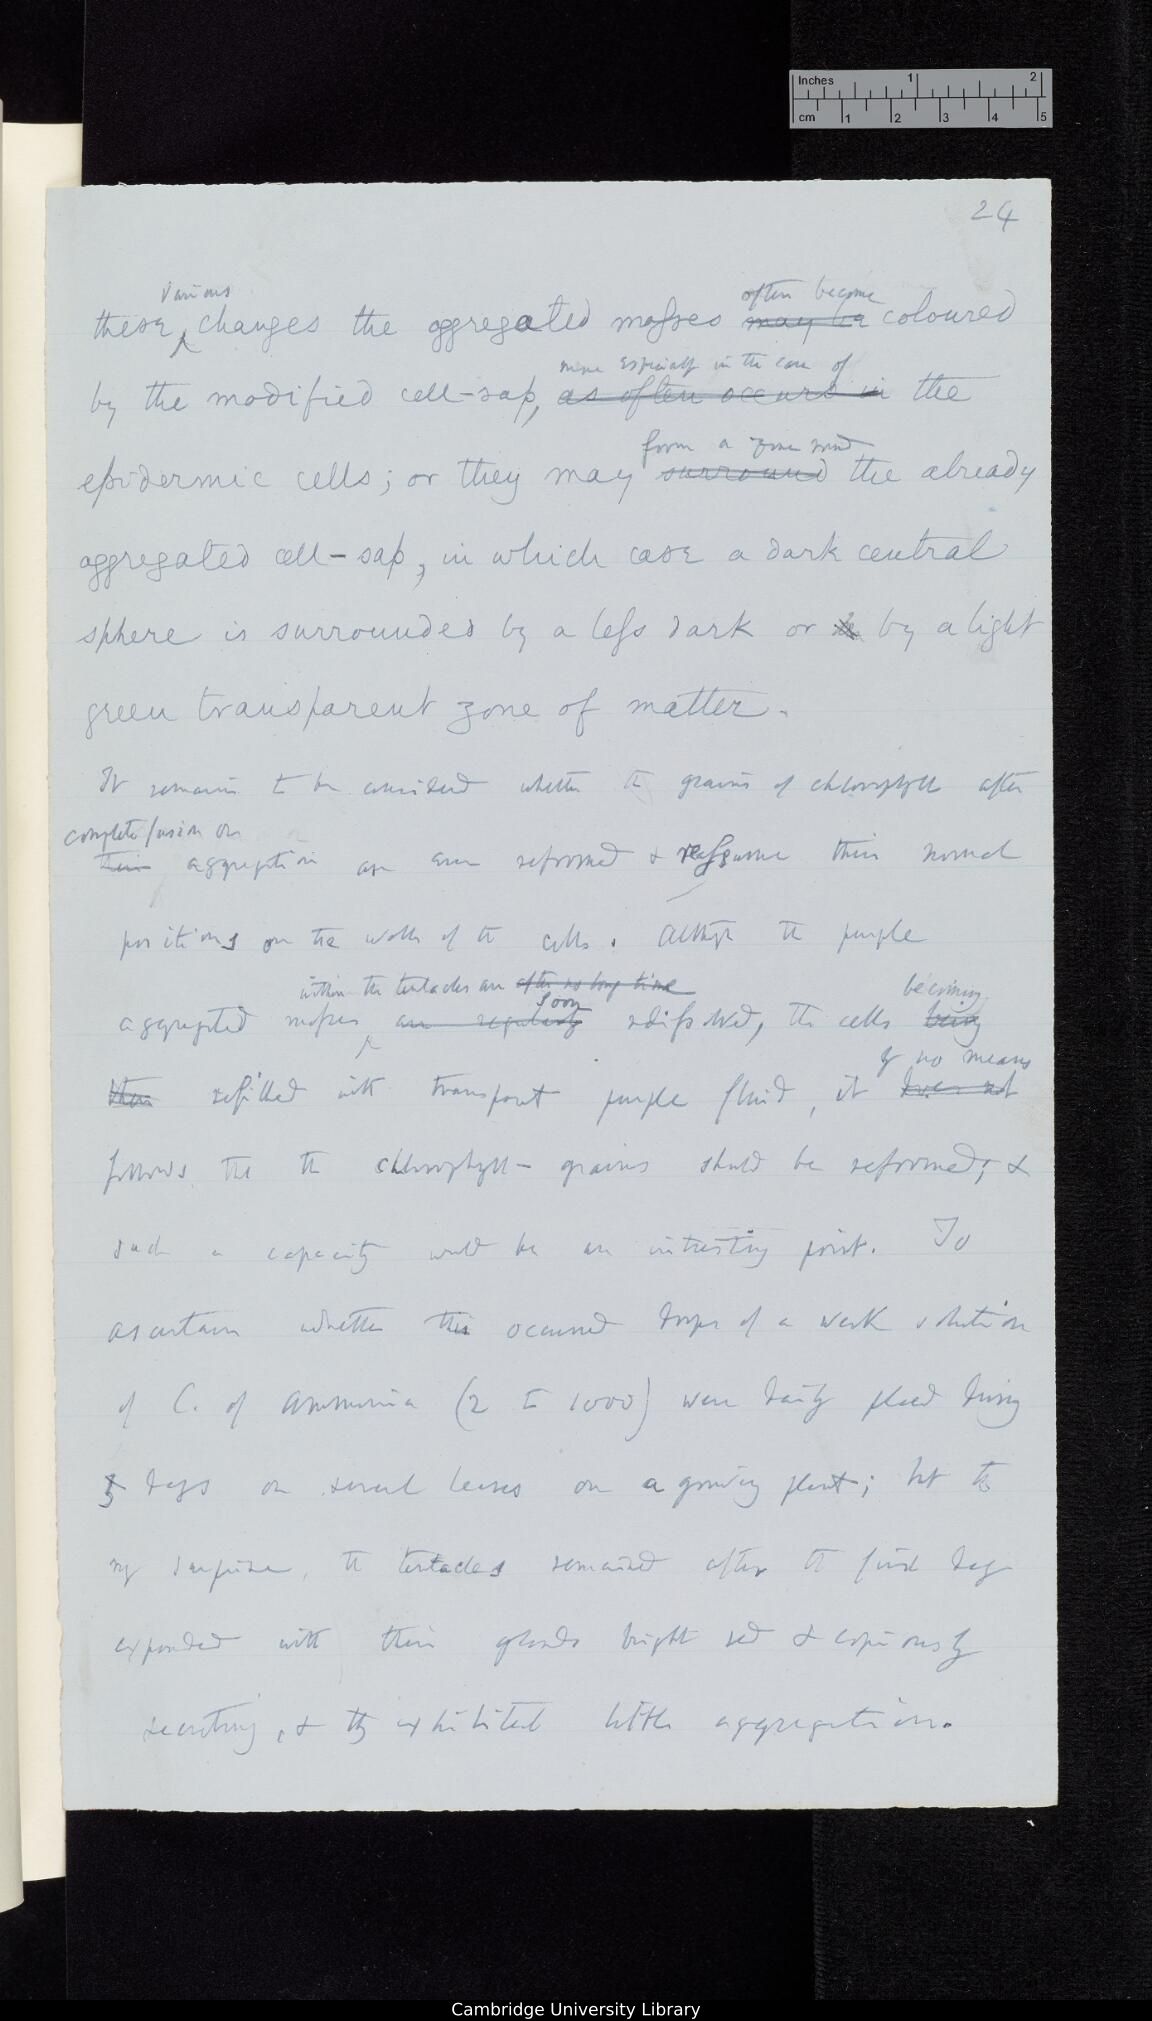 Inches 1 2
cm 1 2 3 4 5
24
various
these changes the aggregated masses often become
may be coloured
more especially in the case of
by the modified cell-sap, as often occurs in the
form a zone round
epidermic cells; or they may surround the already
aggregated cell-sap, in which case a dark central
sphere is surrounded by a less dark or by a light
green transparent zone of matter.
It remains to be considered whether the grains of chlorophyll after
complete fusion or
their aggregation are ever reformed & reassume their normal
positions on the walls of the cells. Although the purple
within the tentacles are after no long time becoming
soon
aggregated masses are regularly redissolved, the cells being
by no means
then refilled with transparent purple fluid, it does not
follows that the chlorophyll-grains should be reformed; &
such a capacity would be an interesting point. To
ascertain whether this occurred drops of a weak solution
of C. of ammonia (2 to 1000) were daily placed during
days on several leaves on a growing plant; but to
my surprise, the tentacles remained after the first day
expanded with their glands bright red & copiously
secreting, & they exhibited little aggregation.
Cambridge University Library